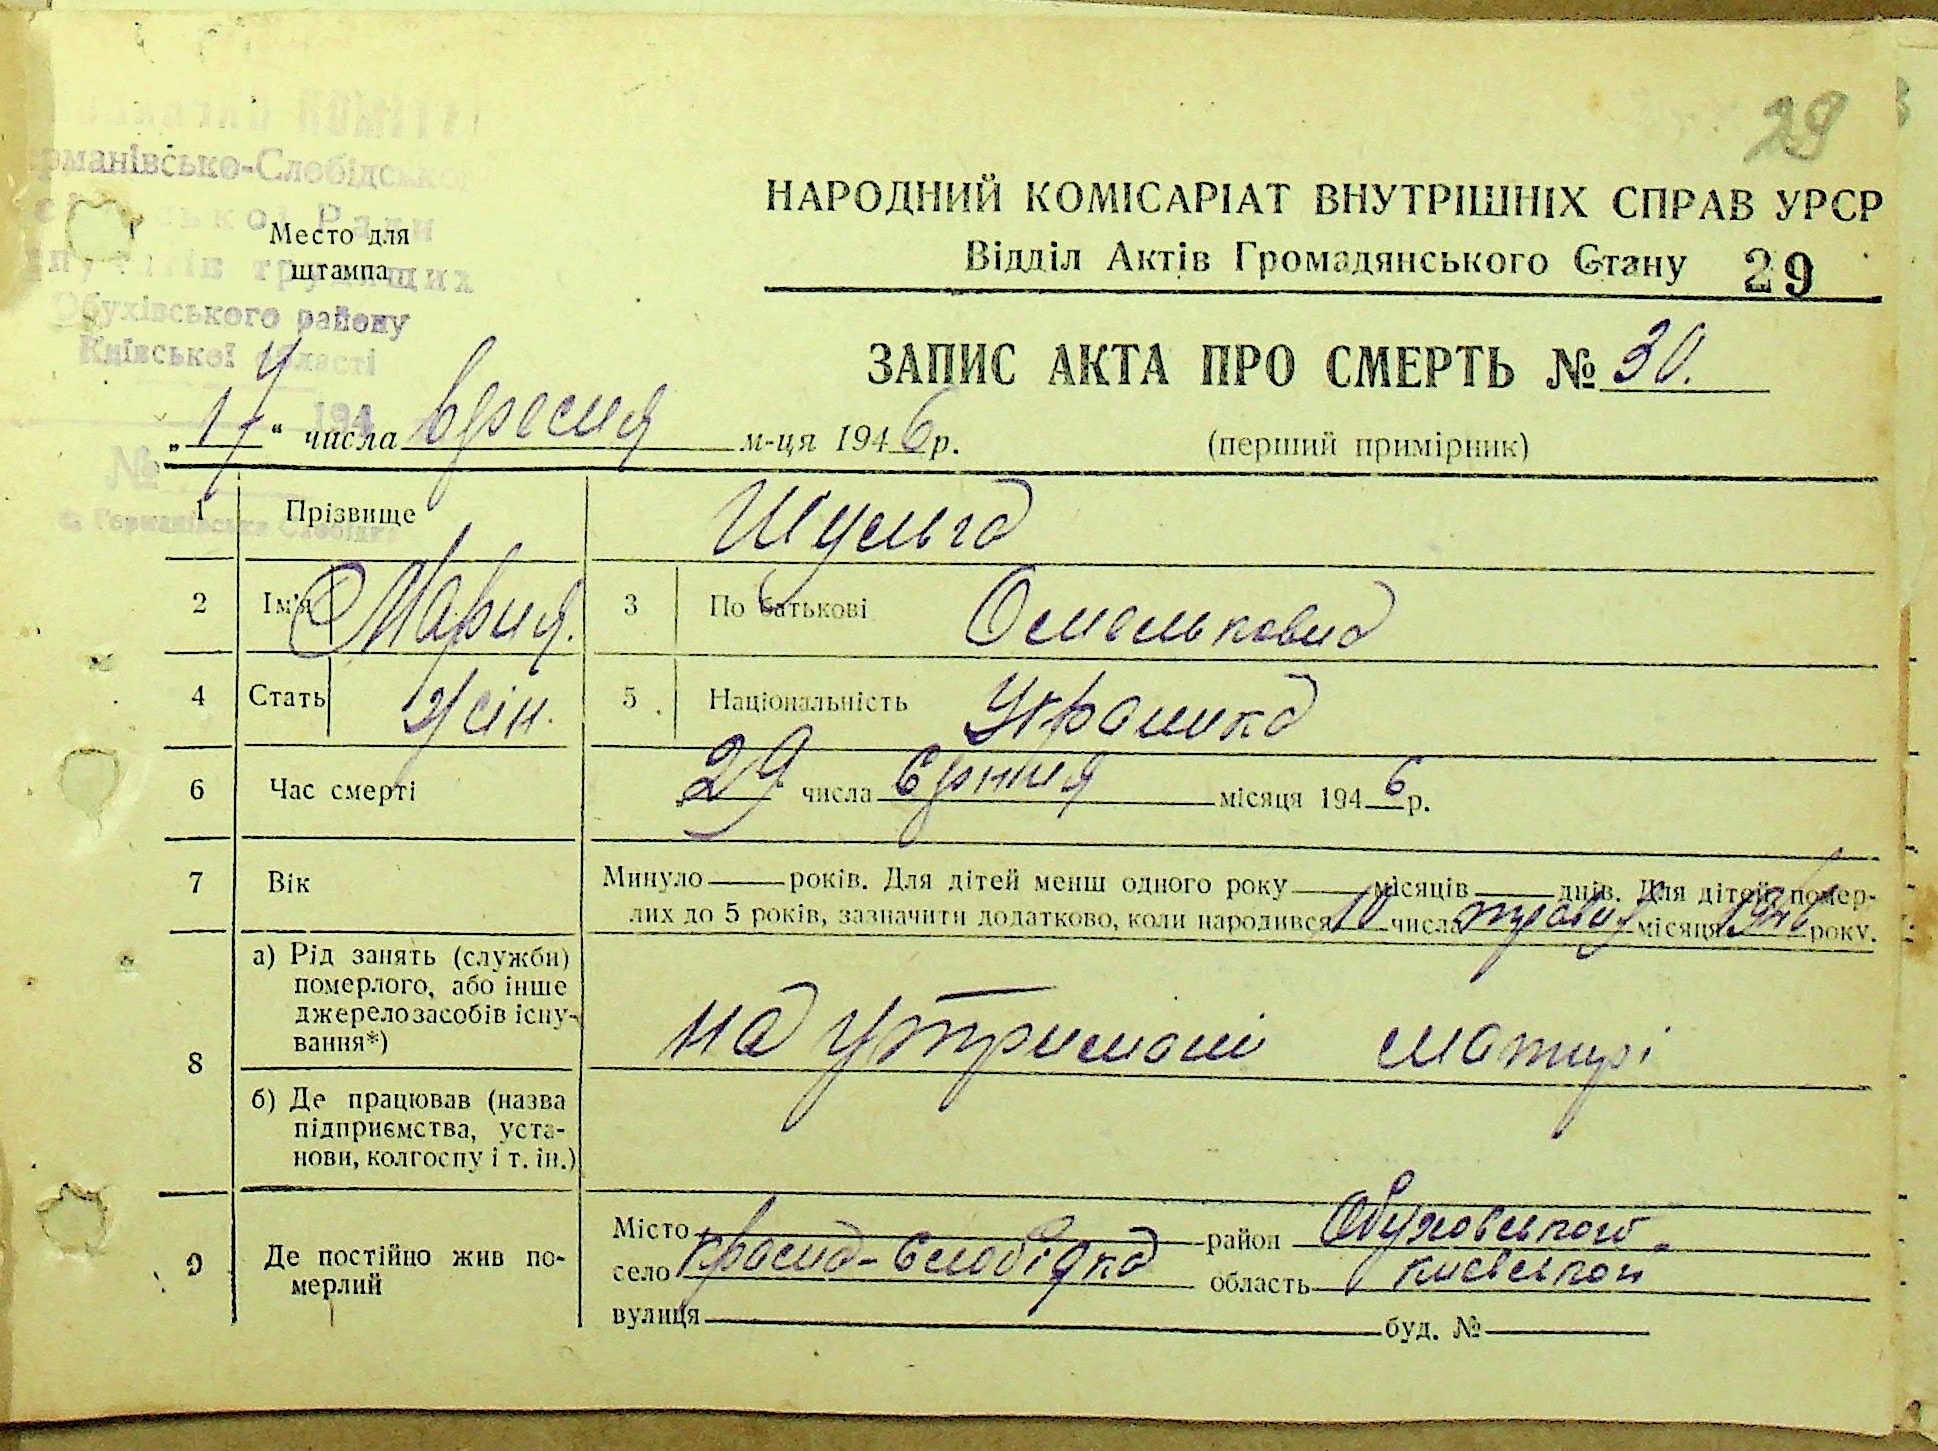 29
НАРОДНИЙ КОМІСАРІАТ ВНУТРІШНІХ СПРАВ УРСР
Відділ Актів Громадянського Стану 29
рманівсько-Слобідсько
Ради
трудящих
Обухівського району
Київської області
Место для
штампа
194
№
ЗАПИС АКТА ПРО СМЕРТЬ № 30.
„17“ числа вресня м-ця 1946 р. (перший примірник)
1 Прізвище Шульга
2 Ім'я Мария. 3 По батькові Омельковна
4 Стать жін. 5 Національність Украинка
6 Час смерті 29 числа серпня місяця 1946 р.
7 Вік Минуло — років. Для дітей менш одного року — місяців — днів. Для дітей помер-
лих до 5 років, зазначити додатково, коли народився 10 числа травня місяця 1946 року.
8 а) Рід занять (служби)
померлого, або інше
джерело засобів існу-
вання*)
на утримані матирі
б) Де працював (назва
підприємства, уста-
нови, колгоспу і т. ін.)
9 Де постійно жив по-
мерлий
Місто район Обуховського
село Красна-Слобідка область Киевськои
вулиця — буд. № —